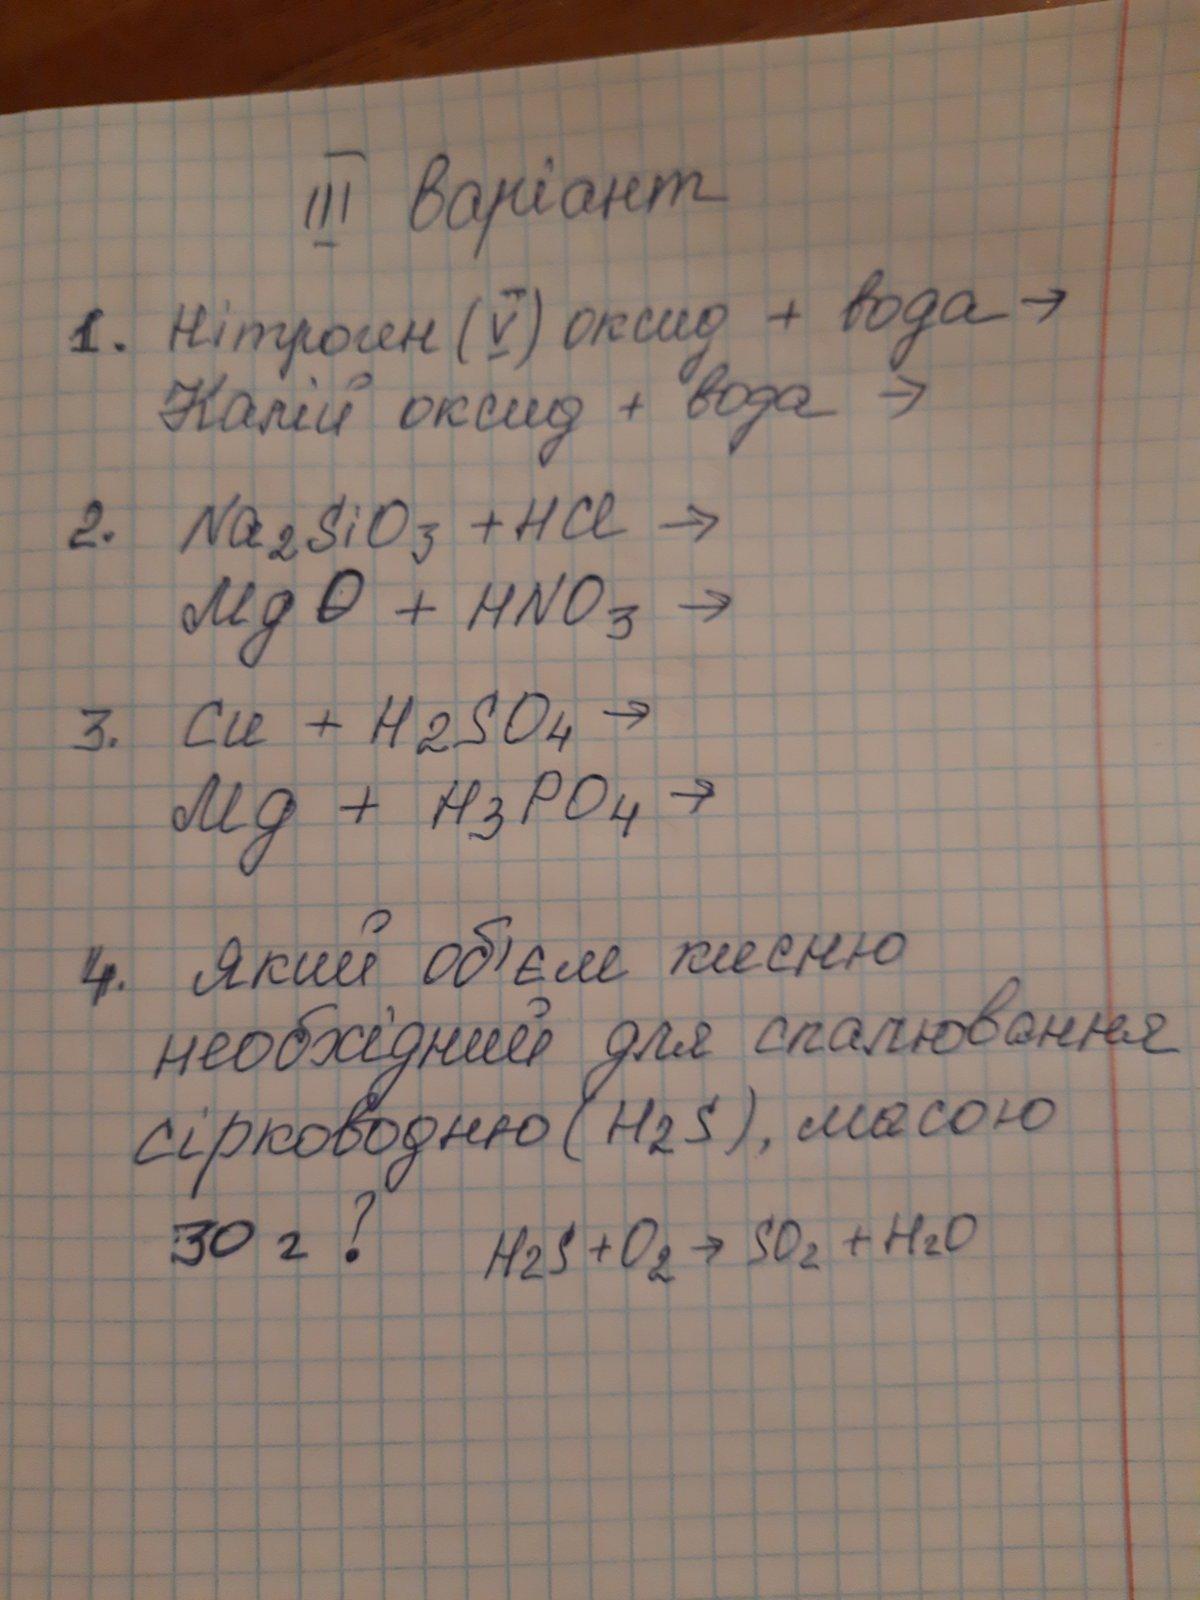 III Варіант
1. Нітроген (V) оксид + вода →
Калій оксид + вода →
2. Na2SiO3 + HCl →
MgO + HNO3 →
3. Cu + H2SO4 →
Mg + H3PO4 →
4. Який об'єм кисню
необхідний для спалювання
сірководню (H2S), масою
30 г? H2S + O2 → SO2 + H2O